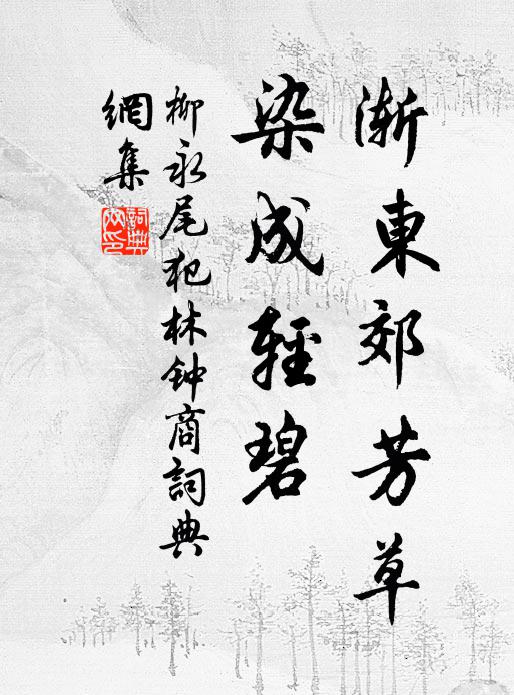 渐東郊芳草
染成輕碧
柳永尾犯林钟商詞典
網集
詞典網印